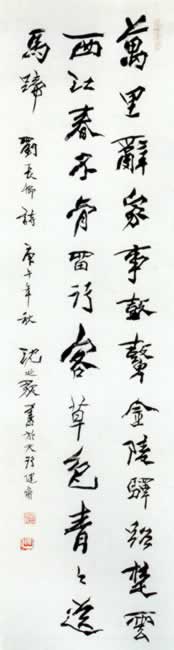 萬里辭家事鼓鼙金陵驛路楚雲
西江春不肯留行客草色青々送
馬蹄 劉長卿詩 庚午年秋 沈延毅書於